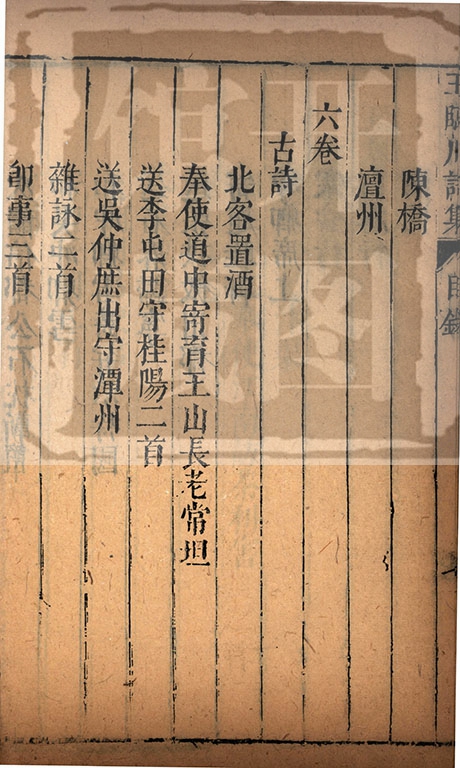 王臨川詩集 目錄
陳橋
澶州
六卷
古詩
北客置酒
奉使道中寄育王山長老常坦
送李屯田守桂陽二首
送吳仲庶出守潭州
雜詠二首
即事三首